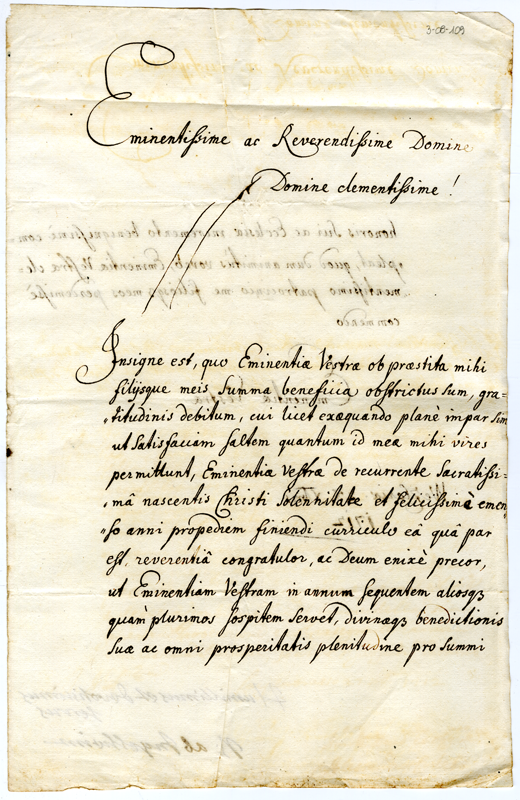 3-08-109
Eminentissime ac Reverendissime Domine
Domine clementissime!
Insigne est, quo Eminentiæ Vestræ ob præstita mihi
filijsque meis summa beneficia obstrictus sum, gra=
=titudinis debitum, cui licet exæquando planè impar sim
ut satisfaciam saltem quantum id meæ mihi vires
permittunt, Eminentiæ Vestræ de recurrente Sacratissi=
=mâ nascentis Christi Solennitate et felicissimè emen=
=so anni propediem finiendi curriculo eâ quâ par
est, reverentiâ congratulor, ac Deum enixè precor,
ut Eminentiam Vestram in annum sequentem aliosqꝫ
quàm plurimos sospitem servet, divinæqꝫ benedictionis
suæ ac omni prosperitatis plenitudine pro summi